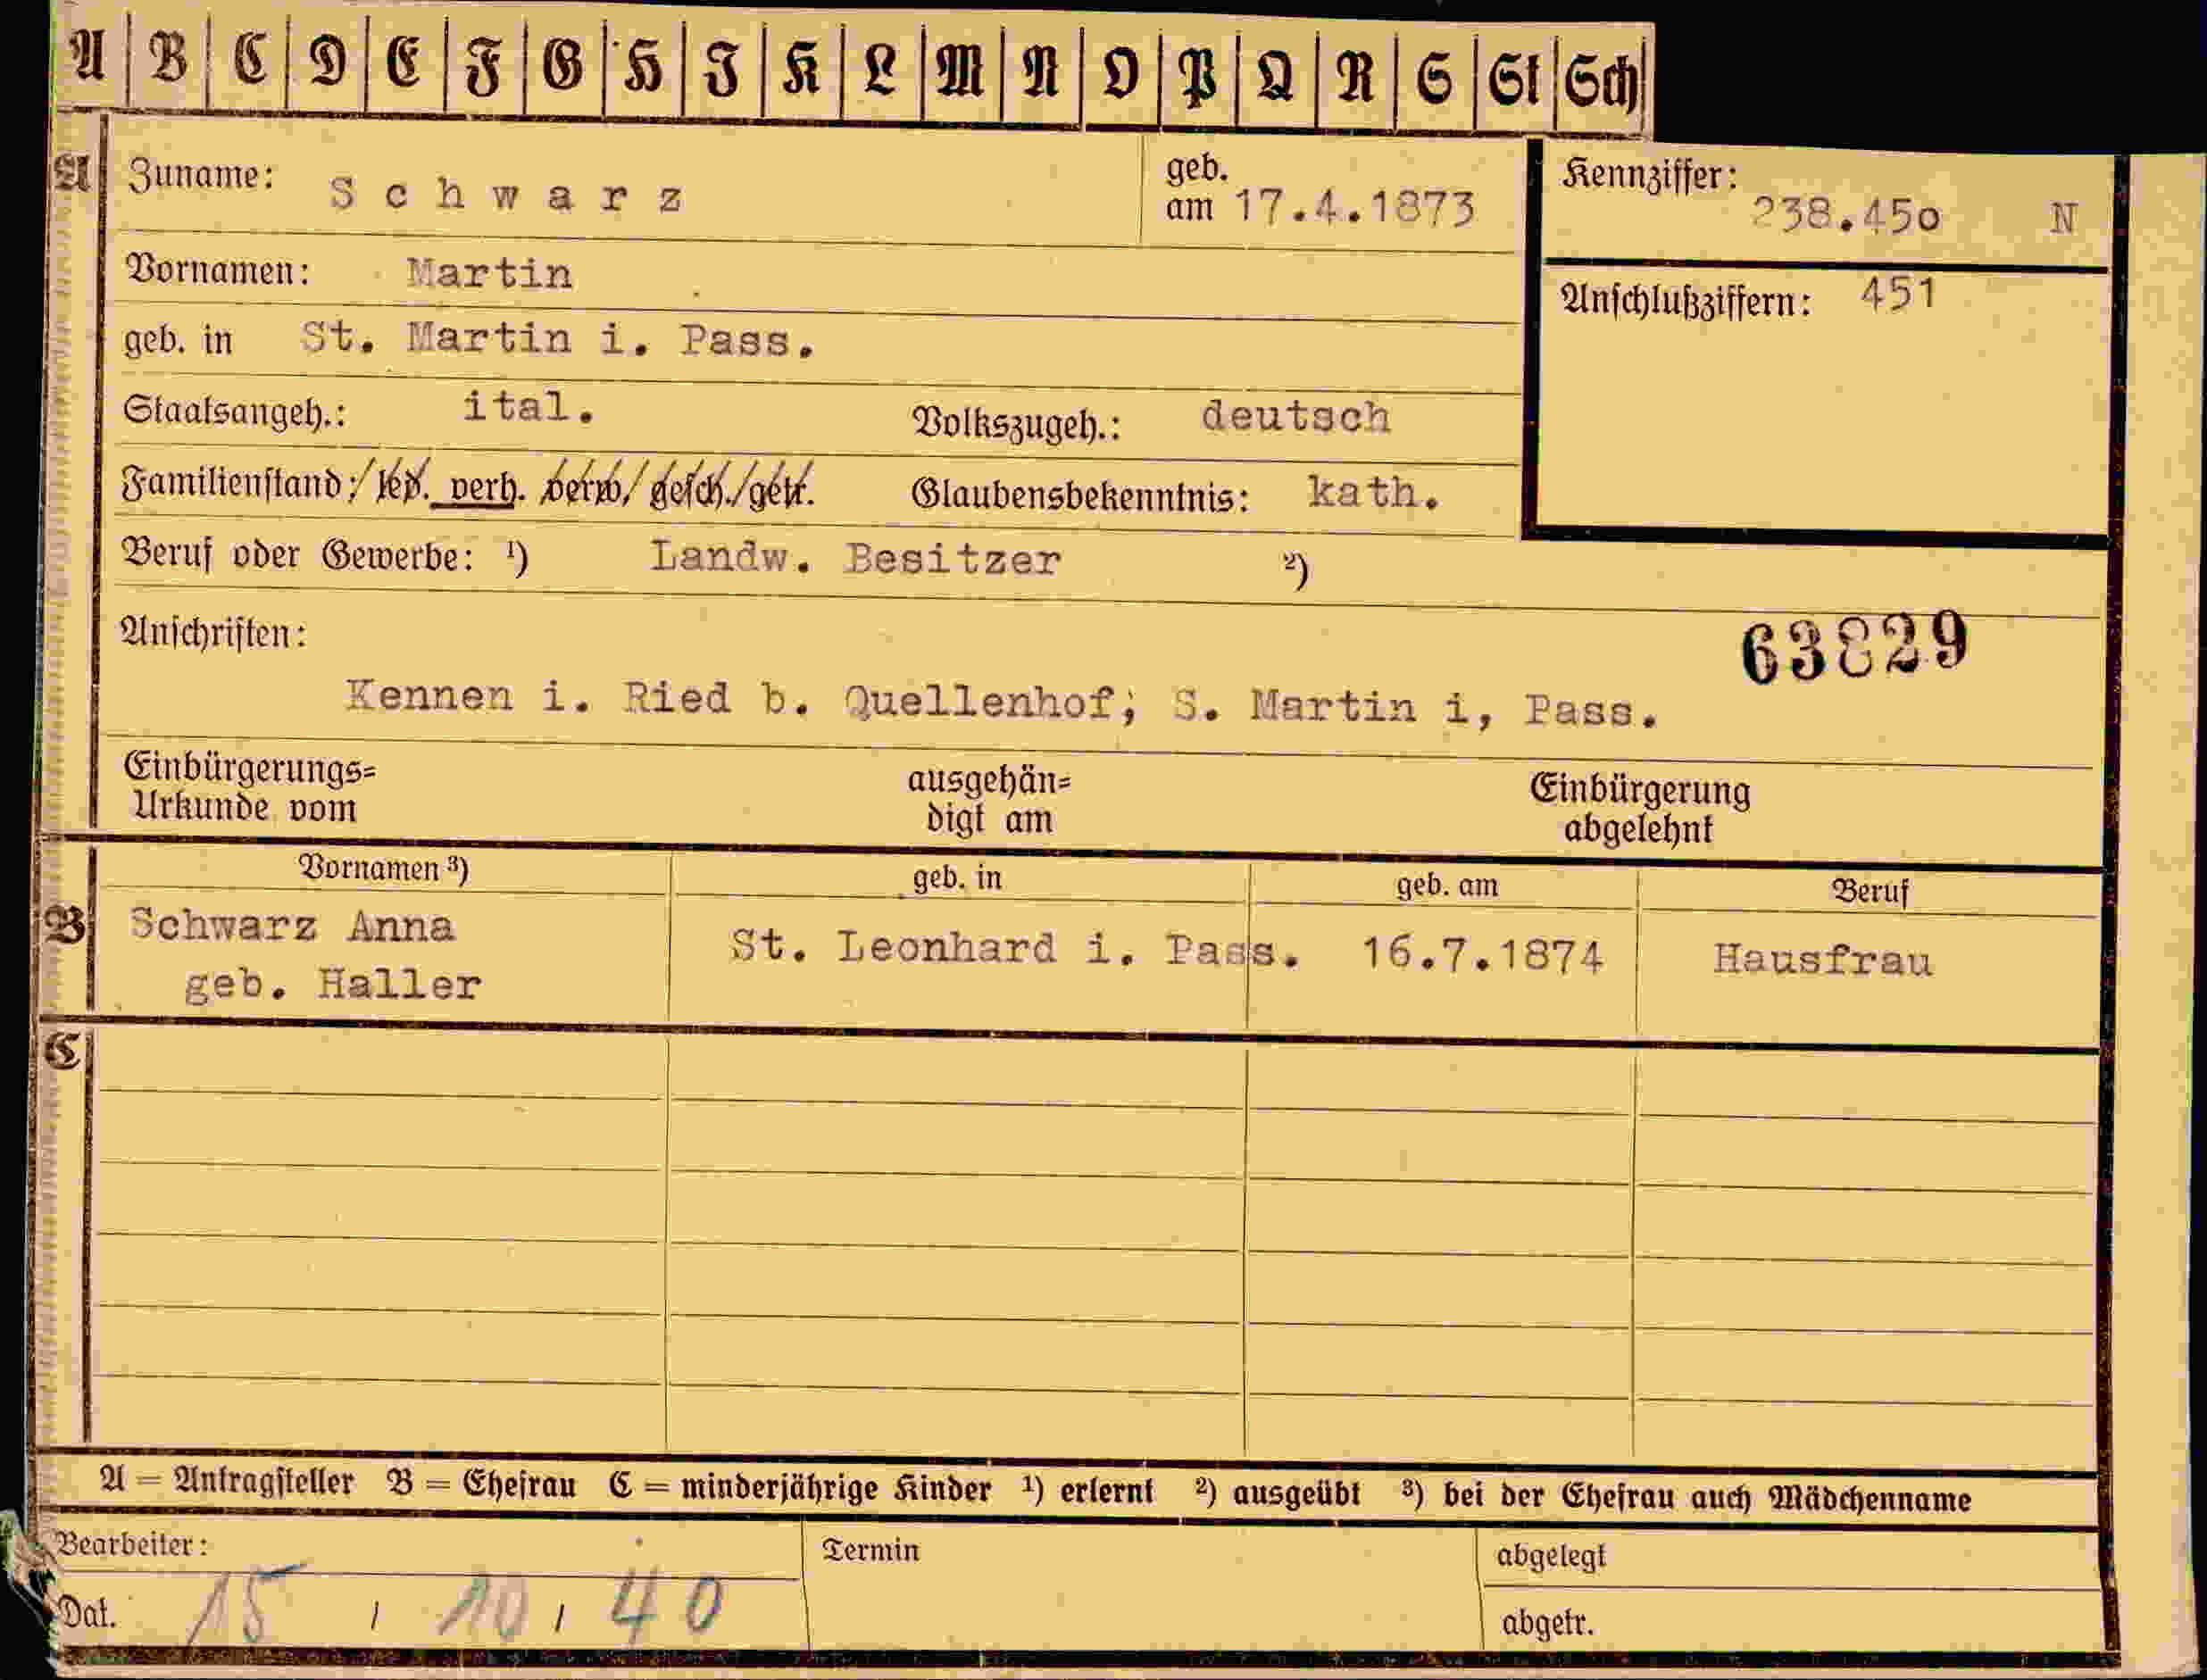 A B C D E F G H I K L M N O P Q R S St Sch
A Zuname: Schwarz geb. am 17.4.1873 Kennziffer: 238.45o N
Vornamen: Martin Anschlußziffern: 451
geb. in St. Martin i. Pass.
Staatsangeh.: ital. Volkszugeh.: deutsch
Familienstand: led. verh. verw. gesch. getr. Glaubensbekenntnis: kath.
Beruf oder Gewerbe: ¹) Landw. Besitzer ²)
Anschriften: 63829
Kennen i. Ried b. Quellenhof; S. Martin i, Pass.
Einbürgerungs= ausgehän= Einbürgerung
Urkunde vom digt am abgelehnt
Vornamen ³) geb. in geb. am Beruf
B Schwarz Anna St. Leonhard i. Pass. 16.7.1874 Hausfrau
geb. Haller
C
A = Antragsteller B = Ehefrau C = minderjährige Kinder ¹) erlernt ²) ausgeübt ³) bei der Ehefrau auch Mädchenname
Bearbeiter: Termin abgelegt
Dat. 15 / 10 / 40 abgetr.